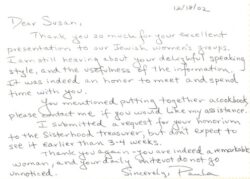 12/18/02
Dear Susan,
Thank you so much for your excellent
presentation to our Jewish women's groups.
I am still hearing about your delightful speaking
style, and the usefulness of the information.
It was indeed an honor to meet and spend
time with you.
You mentioned putting together a cookbook,
please contact me if you would like my assistance.
I submitted a request for your honorium
to the Sisterhood treasurer, but don't expect to
see it earlier than 3-4 weeks.
Thank you again - you are indeed a remarkable
woman, and your daily do not go
unnoticed.
Sincerely, Paula